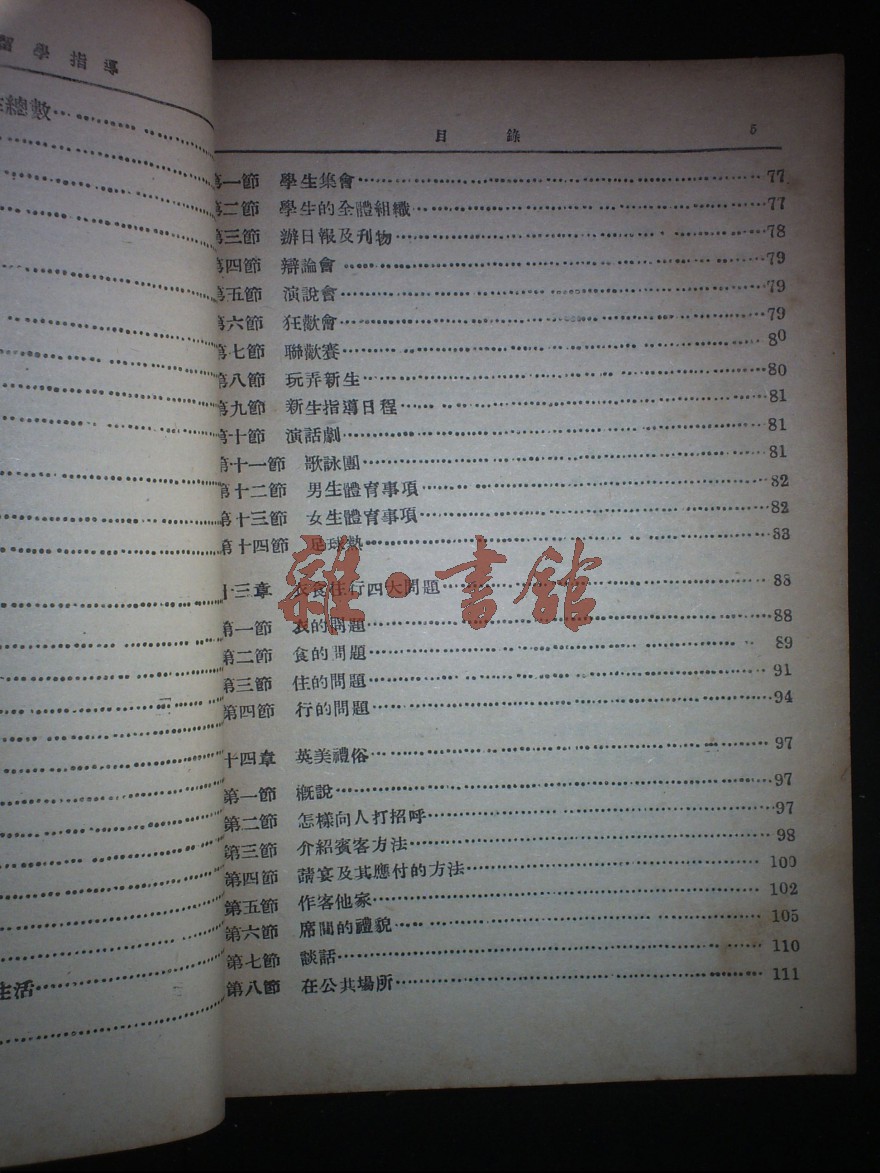 指學
總數
生活
目錄 5
第一節 學生集會 77
第二節 學生的全體組織 77
第三節 辦日報及刋物 78
第四節 辯論會 79
第五節 演說會 79
第六節 狂歡會 79
第七節 聯歡賽 80
第八節 玩弄新生 80
第九節 新生指導日程 81
第十節 演話劇 81
第十一節 歌詠團 81
第十二節 男生體育事項 82
第十三節 女生體育事項 82
第十四節 足球熱 83
十三章 衣食住行四大問題 88
第一節 衣的問題 88
第二節 食的問題 89
第三節 住的問題 91
第四節 行的問題 94
十四章 英美禮俗 97
第一節 概說 97
第二節 怎樣向人打招呼 97
第三節 介紹賓客方法 98
第四節 請宴及其應付的方法 100
第五節 作客他家 102
第六節 席間的禮貌 105
第七節 談話 110
第八節 在公共場所 111
雜·書館